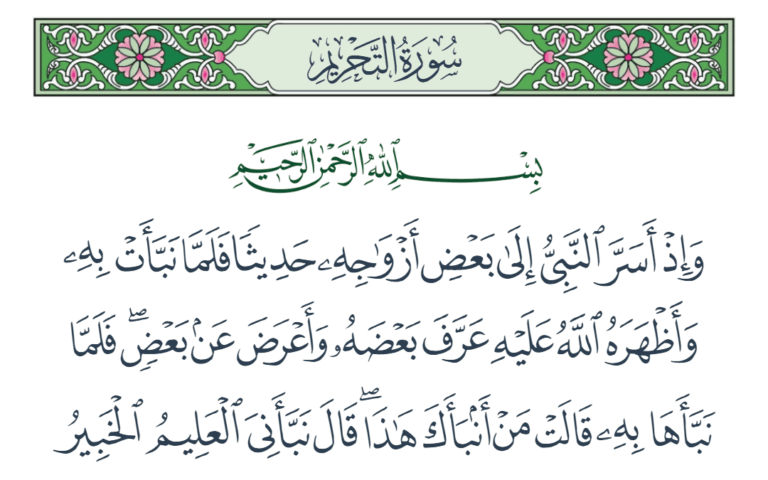 سُورَةُ التَّحْرِيمِ
بِسْمِ ٱللَّهِ ٱلرَّحْمَٰنِ ٱلرَّحِيمِ
وَإِذْ أَسَرَّ ٱلنَّبِىُّ إِلَىٰ بَعْضِ أَزْوَٰجِهِۦ حَدِيثًا فَلَمَّا نَبَّأَتْ بِهِۦ
وَأَظْهَرَهُ ٱللَّهُ عَلَيْهِ عَرَّفَ بَعْضَهُۥ وَأَعْرَضَ عَنۢ بَعْضٍۢ ۖ فَلَمَّا
نَبَّأَهَا بِهِۦ قَالَتْ مَنْ أَنۢبَأَكَ هَٰذَا ۖ قَالَ نَبَّأَنِىَ ٱلْعَلِيمُ ٱلْخَبِيرُ